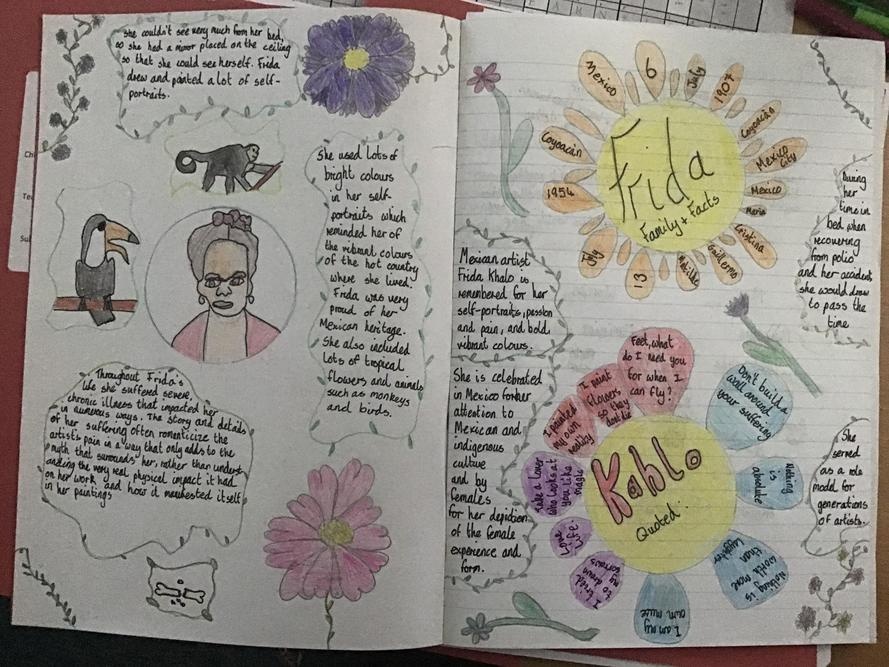 she couldn't see very much from her bed,
so she had a mirror placed on the ceiling
so that she could see herself. Frida
drew and painted a lot of self-
portraits.
She used lots of
bright colours
in her self-
portraits which
reminded her of
the vibrant colours
of the hot country
where she lived.
Frida was very
proud of her
Mexican heritage.
She also included
lots of tropical
flowers and animals
such as monkeys
and birds.
Throughout Frida's
life she suffered severe,
chronic illness that impacted her
in numerous ways. The story and details
of her suffering often romanticize the
artist's pain in a way that only adds to the
myth that surrounds her, rather than underst-
anding the very real physical impact it had
on her work and how it manifested itself
in her paintings
Frida
Family + Facts
Mexico
6
July
1907
Coyoacán
Mexico
City
Mexico
Maria
Cristina
Guillermo
Matilde
13
July
1954
Coyoacán
During
her
time in
bed when
recovering
from polio
and her accident
she would draw
to pass the
time
Mexican artist
Frida Khalo is
remembered for her
self-portraits, passion
and pain, and bold,
vibrant colours.
She is celebrated
in Mexico for her
attention to
Mexican and
indigenous
culture
and by
females
for her depiction
of the female
experience and
form.
Kahlo
Quoted
Feet, what
do I need you
for when I
can fly?
Don't build a
wall around
your suffering
Nothing
is
absolute
Nothing is
worth more
than
laughter
I am my
own muse
I tried
to drown
my
sorrows
Love
Life
Take a lover
who looks at
you like
magic
I painted
my own
reality
I paint
flowers
so they
don't die
She
served
as a role
model for
generations
of artists.